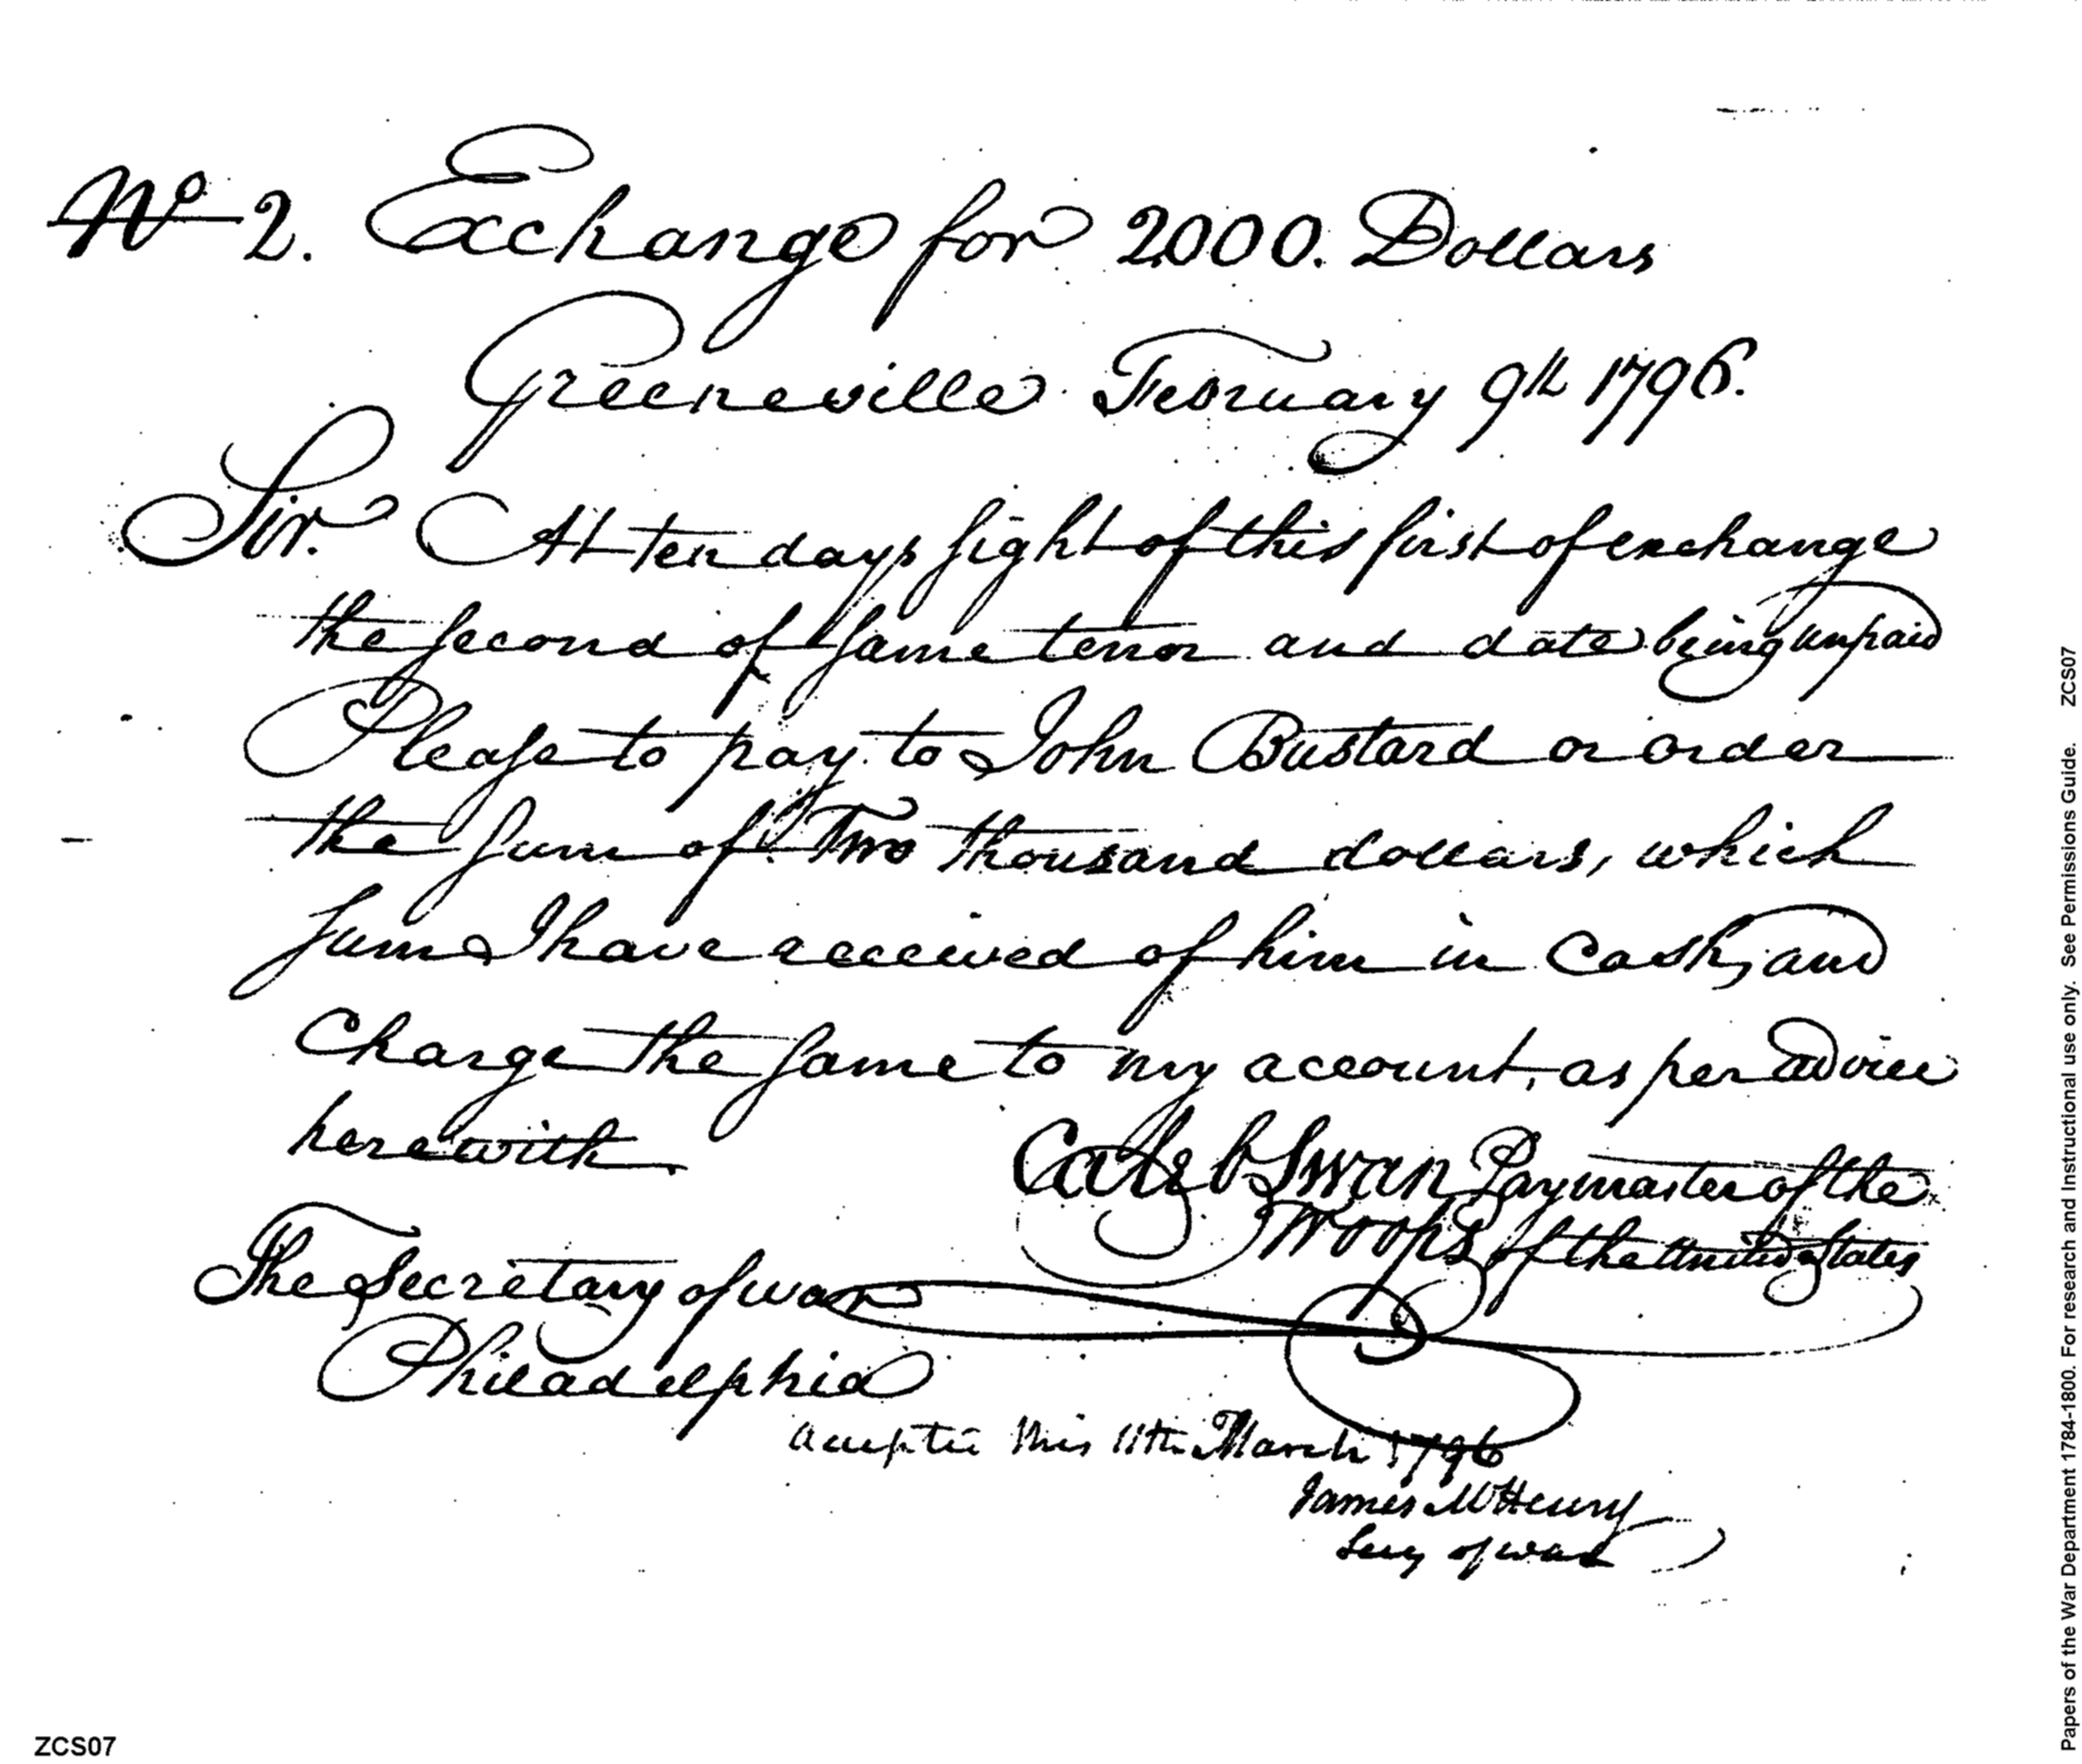 No 2. Exchange for 2000. Dollars
Greeneville February 9th 1796.
Sir. At ten days sight of this first of exchange
the second of same tenor and date being unpaid
Please to pay to John Bustard or order
the sum of Two thousand dollars, which
sum I have received of him in Cash, and
Charge the same to my account, as per advice
herewith.
Caleb Swan Paymaster of the
Troops of the United States
The Secretary of war
Philadelphia
accepted this 11th March 1796
James McHenry
Secy of war
ZCS07
Papers of the War Department 1784-1800. For research and Instructional use only. See Permissions Guide. ZCS07